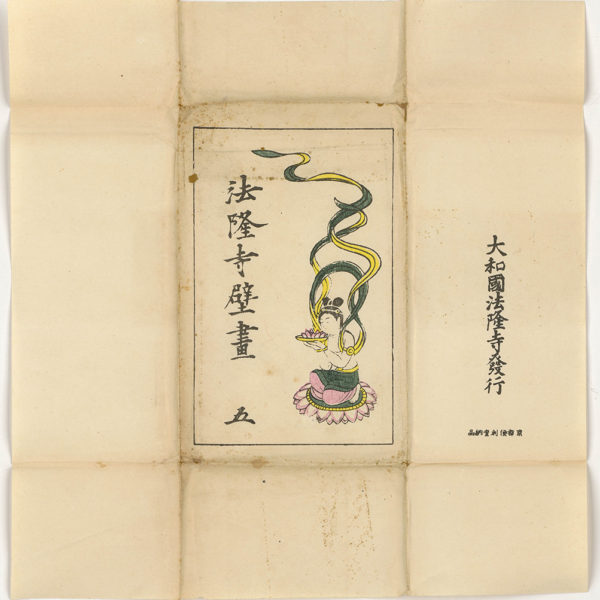 大和國法隆寺發行
京都便利堂納品
法隆寺壁畫 五